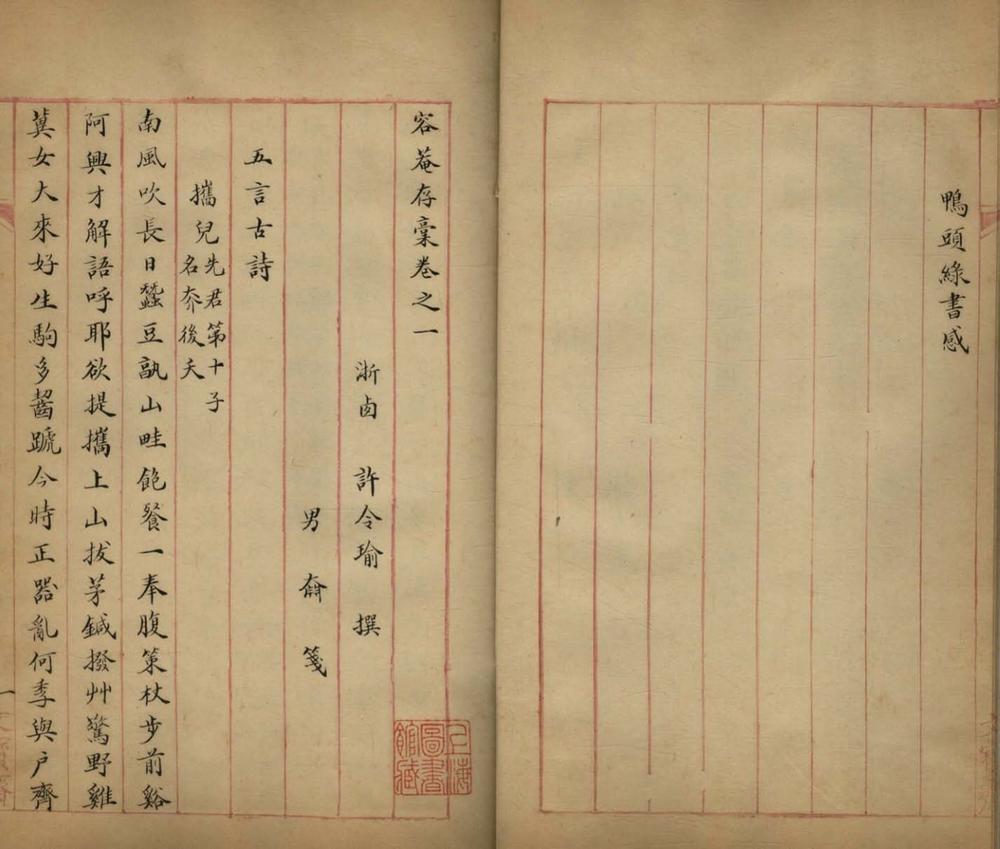 鴨頭綠書感
容菴存稾卷之一
浙鹵 許令瑜 撰
男 奣 箋
五言古詩
攜兒先君第十子名夰後夭
南風吹長日蠶豆孰山畦飽餐一奉腹策杖步前谿
阿興才解語呼耶欲提攜上山拔茅鍼撥艸驚野雞
冀女大來好生駒多齧蹏今時正嚣亂何季與户齊
一
上海圖書館藏